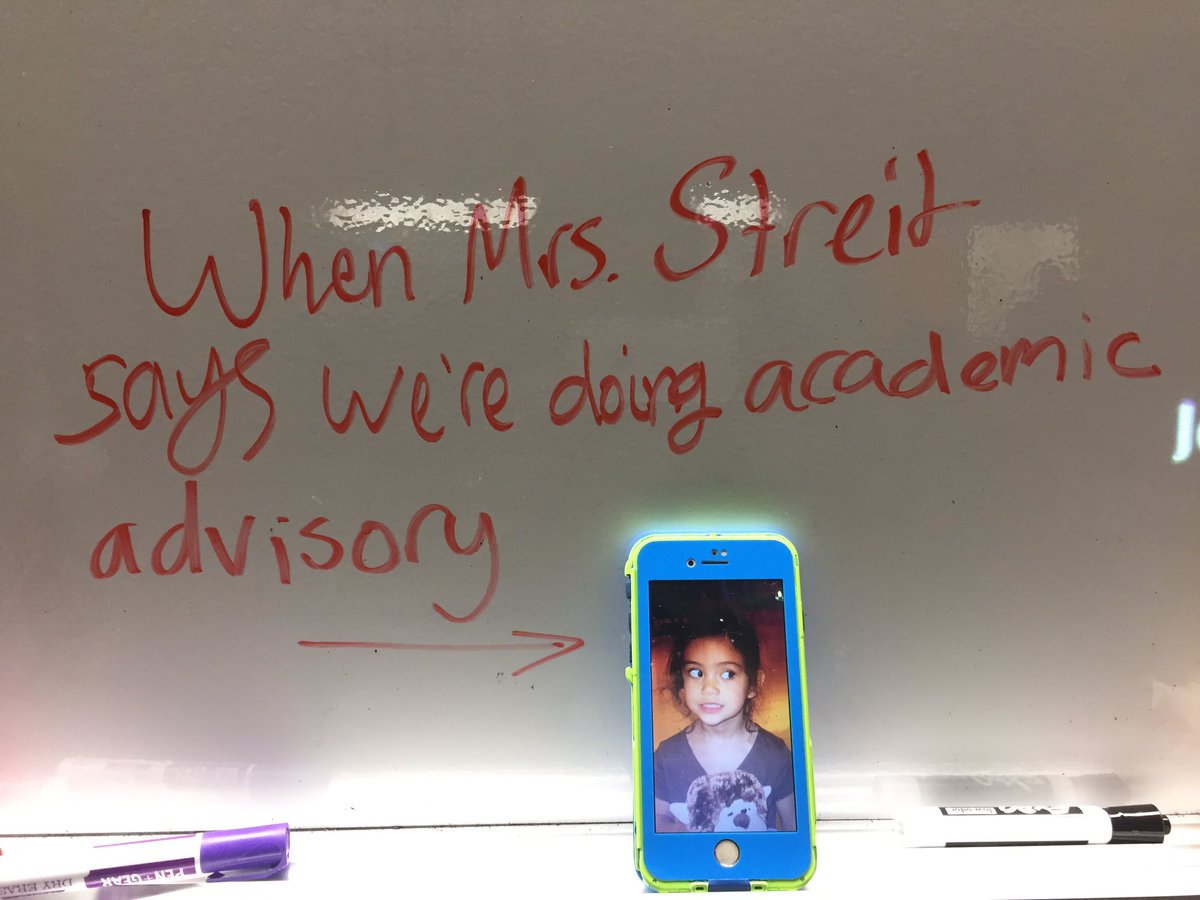 When Mrs. Streit
says we're doing academic
advisory
PEN+GEAR
DRY ERA
low odor